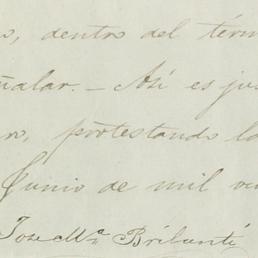 o, dentro del térm
ñalar. — Así es jus
ro, protestando lo
Junio de mil no
Jose Mª Brilanti